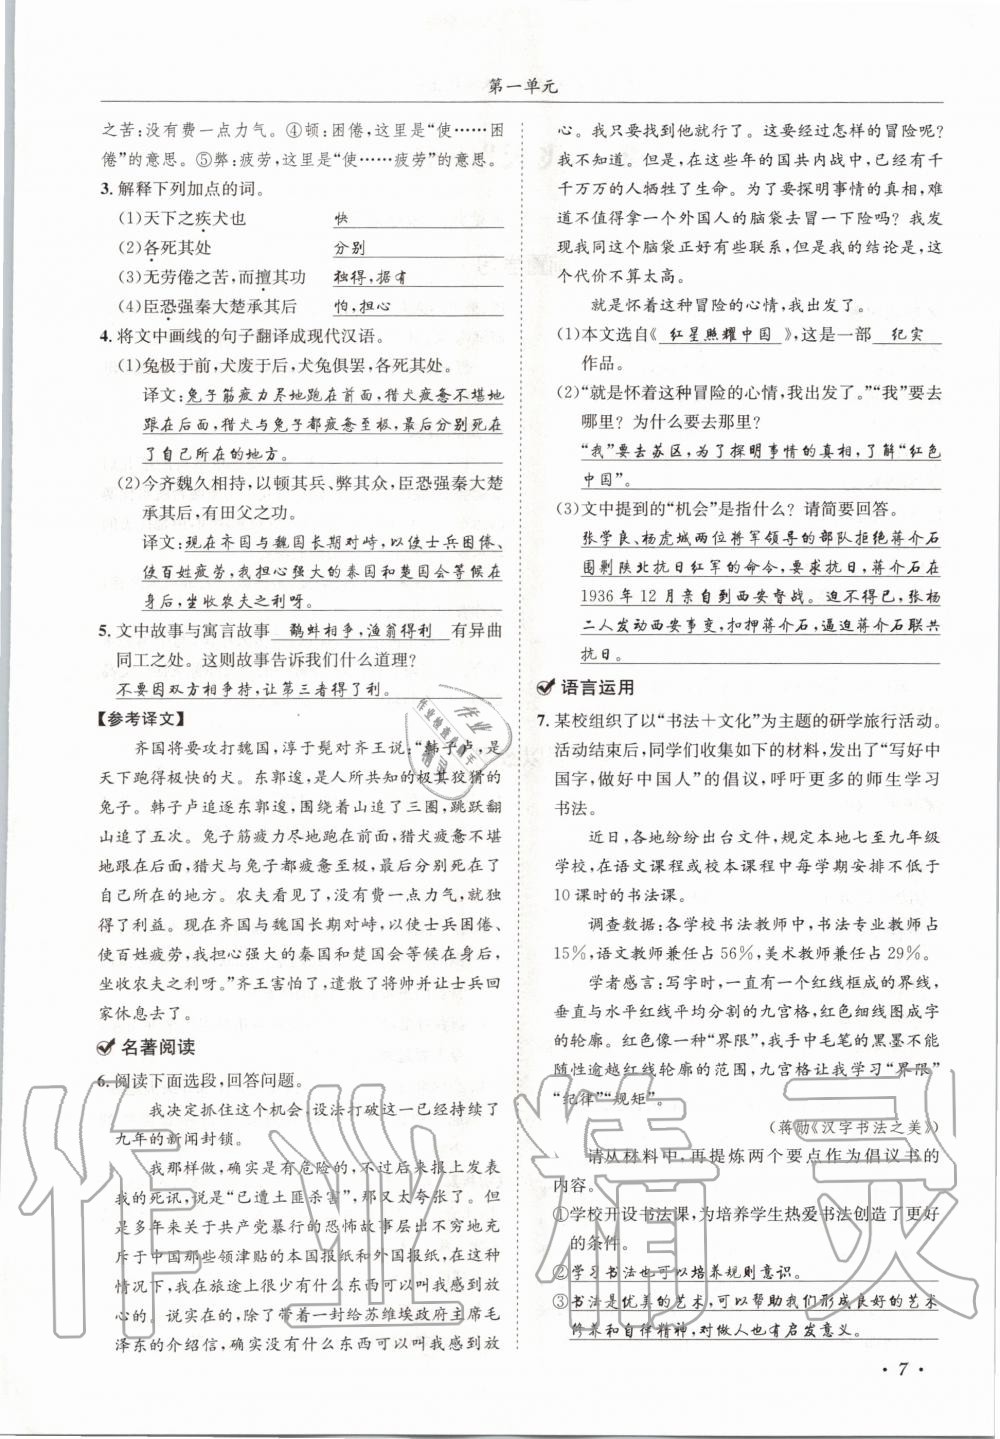 第一单元
之苦:没有费一点力气。④顿:困倦,这里是“使……困
倦”的意思。⑤弊:疲劳,这里是“使……疲劳”的意思。
3. 解释下列加点的词。
(1)天下之疾犬也 快
(2)各死其处 分别
(3)无劳倦之苦,而擅其功 独得,据有
(4)臣恐强秦大楚承其后 怕,担心
4. 将文中画线的句子翻译成现代汉语。
(1)兔极于前,犬废于后,犬兔俱罢,各死其处。
译文:兔子筋疲力尽地跑在前面,猎犬疲惫不堪地
跟在后面,猎犬与兔子都疲惫至极,最后分别死在
了自己所在的地方。
(2)今齐魏久相持,以顿其兵、弊其众,臣恐强秦大楚
承其后,有田父之功。
译文:现在齐国与魏国长期对峙,以使士兵困倦、
使百姓疲劳,我担心强大的秦国和楚国会等候在
身后,坐收农夫之利呀。
5. 文中故事与寓言故事 鹬蚌相争,渔翁得利 有异曲
同工之处。这则故事告诉我们什么道理?
不要因双方相争持,让第三者得了利。
【参考译文】
齐国将要攻打魏国,淳于髡对齐王说:“韩子卢,是
天下跑得极快的犬。东郭逡,是人所共知的极其狡猾的
兔子。韩子卢追逐东郭逡,围绕着山追了三圈,跳跃翻
山追了五次。兔子筋疲力尽地跑在前面,猎犬疲惫不堪
地跟在后面,猎犬与兔子都疲惫至极,最后分别死在了
自己所在的地方。农夫看见了,没有费一点力气,就获
得了利益。现在齐国与魏国长期对峙,以使士兵困倦、
使百姓疲劳,我担心强大的秦国和楚国会等候在身后,
坐收农夫之利呀。”齐王害怕了,遣散了将帅并让士兵回
家休息去了。
名著阅读
6. 阅读下面选段,回答问题。
我决定抓住这个机会,设法打破这一已经持续了
九年的新闻封锁。
我那样做,确实是有危险的,不过,后来报上发表
我的死讯,说是“已遭土匪杀害”,那又太夸张了。但是
多年来关于共产党暴行的恐怖故事层出不穷地充
斥于中国那些领津贴的本国报纸和外国报纸,在这种
情况下,我在旅途上很少有什么东西可以叫我感到放
心。说实在的,除了带着一封给苏维埃政府主席毛
泽东的介绍信,确实没有什么东西可以叫我感到放
心。我只要找到他就行了。这要经过怎样的冒险呢?
我不知道。但是,在这些年的国共内战中,已经有千
千万万的人牺牲了生命。为了探明事情的真相,难
道不值得拿一个外国人的脑袋去冒一下险吗?我发
现我同这个脑袋正好有些联系,但是我的结论是,这
个代价不算太高。
就是怀着这种冒险的心情,我出发了。
(1)本文选自《 红星照耀中国 》,这是一部 纪实
作品。
(2)“就是怀着这种冒险的心情,我出发了。”“我”要去
哪里?为什么要去那里?
“我”要去苏区,为了探明事情的真相,了解“红色
中国”。
(3)文中提到的“机会”是指什么?请简要回答。
张学良、杨虎城两位将军领导的部队拒绝蒋介石
围剿陕北抗日红军的命令,要求抗日,蒋介石在
1936年12月亲自到西安督战。迫不得已,张杨
二人发动西安事变,扣押蒋介石,逼迫蒋介石联共
抗日。
语言运用
7. 某校组织了以“书法+文化”为主题的研学旅行活动。
活动结束后,同学们收集如下的材料,发出了“写好中
国字,做好中国人”的倡议,呼吁更多的师生学习
书法。
近日,各地纷纷出台文件,规定本地七至九年级
学校,在语文课程或校本课程中每学期安排不低于
10课时的书法课。
调查数据:各学校书法教师中,书法专业教师占
15%,语文教师兼任占56%,美术教师兼任占29%。
学者感言:写字时,一直有一个红线框成的界线,
垂直与水平红线平均分割的九宫格,红色细线图成字
的轮廓。红色像一种“界限”,我手中毛笔的黑墨不能
随性逾越红线轮廓的范围,九宫格让我学习“界限”
“纪律”“规矩”。
(蒋勋《汉字书法之美》)
请从材料中,再提炼两个要点作为倡议书的
内容。
①学校开设书法课,为培养学生热爱书法创造了更好
的条件。
②学习书法也可以培养规则意识。
③书法是优美的艺术,可以帮助我们形成良好的艺术
修养和自律精神,对做人也有启发意义。
· 7 ·
作业精灵